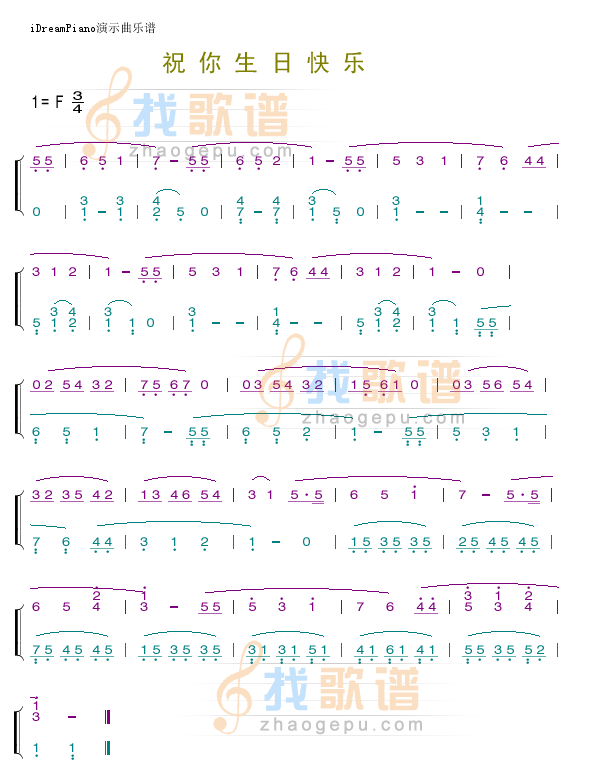 iDreamPiano演示曲乐谱
祝你生日快乐
1=F 3/4
找歌谱
zhaogepu.com
55 | 6 5 1 | 7 - 55 | 6 5 2 | 1 - 55 | 5 3 1 | 7 6 44
0 | 3 1 - 3 1 | 4 2 5 0 | 4 7 - 4 7 | 3 1 5 0 | 1 - - | 1 4 - -
3 1 2 | 1 - 55 | 5 3 1 | 7 6 44 | 3 1 2 | 1 - 0 |
5 3 1 4 2 | 3 1 1 0 | 1 - - | 1 4 - - | 5 3 1 4 2 | 3 1 1 55 |
找歌谱
zhaogepu.com
02 54 32 | 75 67 0 | 03 54 32 | 15 61 0 | 03 56 54 |
6 5 1 | 7 - 55 | 6 5 2 | 1 - 55 | 5 3 1 |
32 35 42 | 13 46 54 | 3 1 5·5 | 6 5 1 | 7 - 5·5 |
7 6 44 | 3 1 2 | 1 - 0 | 15 35 35 | 25 45 45 |
6 5 2 4 | 1 3 - 55 | 5 3 1 | 7 6 44 | 3 5 1 3 2 4 |
75 45 45 | 15 35 35 | 31 31 51 | 41 61 61 | 55 35 52 |
找歌谱
zhaogepu.com
1 3 -
1 1